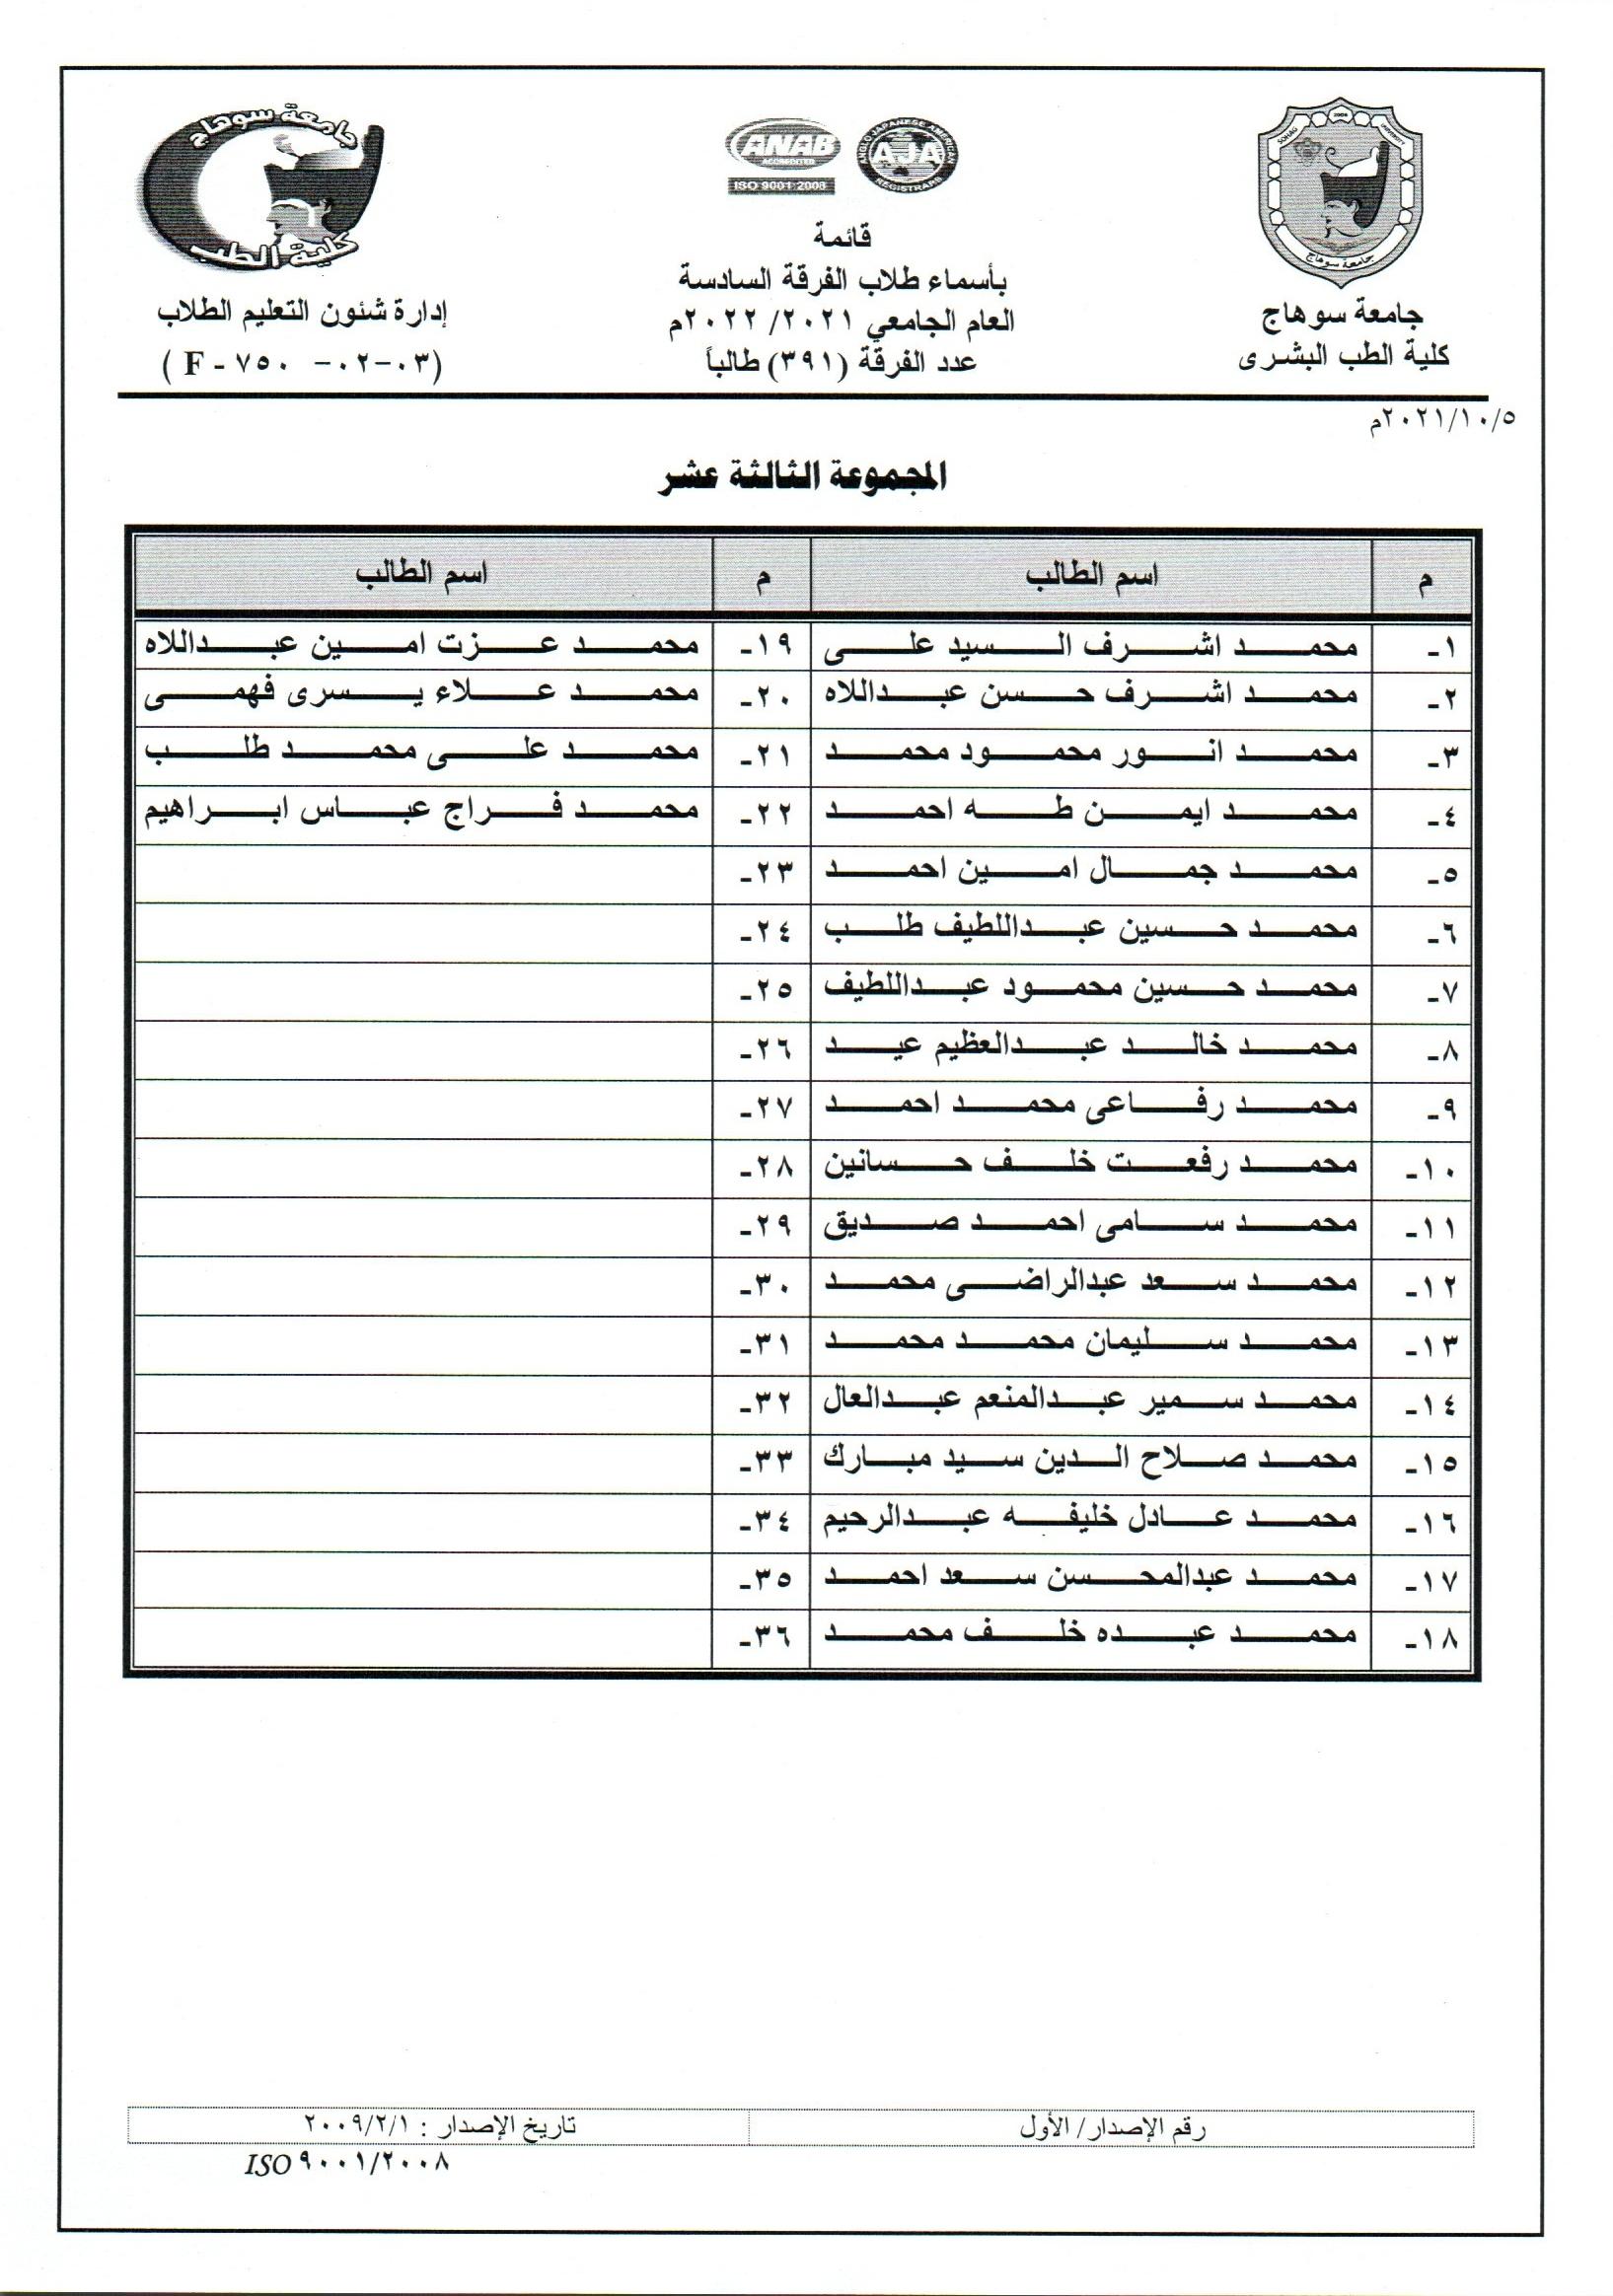 جامعة سوهاج
كلية الطب البشرى
ANAB
ACCREDITED
ISO 9001:2008
ANGLO JAPANESE AMERICAN
AJA
REGISTRARS
قائمة
بأسماء طلاب الفرقة السادسة
العام الجامعي ٢٠٢١/ ٢٠٢٢م
عدد الفرقة (٣٩١) طالباً
جامعة سوهاج
كلية الطب
إدارة شئون التعليم الطلاب
(F - ٧٥٠ -٠٢-٠٣)
٢٠٢١/١٠/٥م
المجموعة الثالثة عشر
م اسم الطالب م اسم الطالب
١- محمد اشرف السيد على ١٩- محمد عزت امين عبداللاه
٢- محمد اشرف حسن عبداللاه ٢٠- محمد علاء يسرى فهمى
٣- محمد انور محمود محمد ٢١- محمد على محمد طلب
٤- محمد ايمن طه احمد ٢٢- محمد فراج عباس ابراهيم
٥- محمد جمال امين احمد ٢٣-
٦- محمد حسين عبداللطيف طلب ٢٤-
٧- محمد حسين محمود عبداللطيف ٢٥-
٨- محمد خالد عبدالعظيم عيد ٢٦-
٩- محمد رفاعى محمد احمد ٢٧-
١٠- محمد رفعت خلف حسانين ٢٨-
١١- محمد سامى احمد صديق ٢٩-
١٢- محمد سعد عبدالراضى محمد ٣٠-
١٣- محمد سليمان محمد محمد ٣١-
١٤- محمد سمير عبدالمنعم عبدالعال ٣٢-
١٥- محمد صلاح الدين سيد مبارك ٣٣-
١٦- محمد عادل خليفه عبدالرحيم ٣٤-
١٧- محمد عبدالمحسن سعد احمد ٣٥-
١٨- محمد عبده خلف محمد ٣٦-
رقم الإصدار/ الأول تاريخ الإصدار : ٢٠٠٩/٢/١
ISO ٩٠٠١/٢٠٠٨